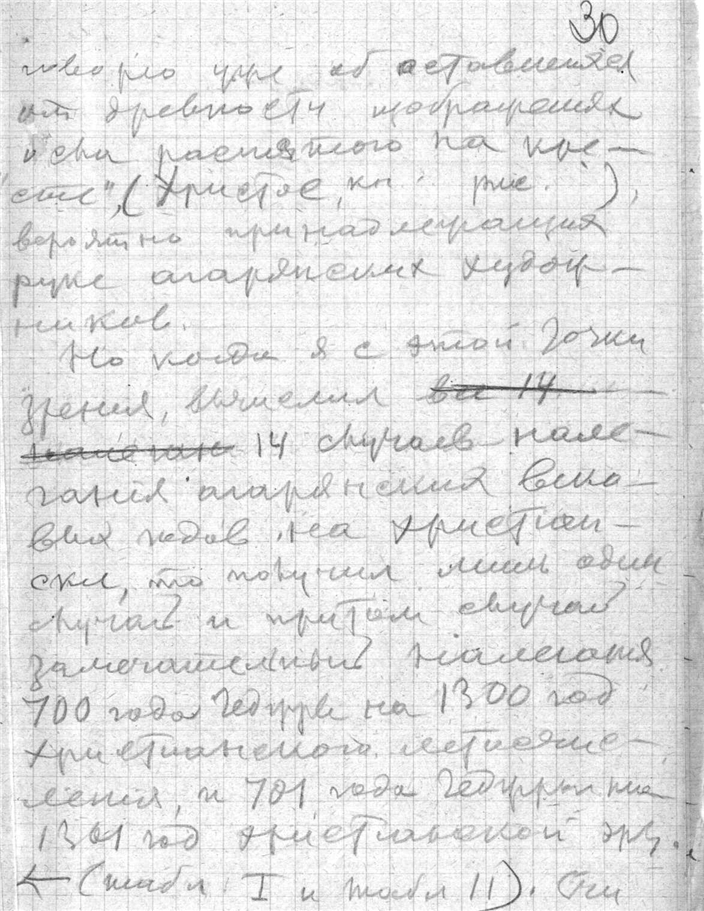 30
говорю уже об оставшихся
от древности изображениях
"Осы распятого на кре-
сте", (Христос, кн. рис. ),
вероятно принадлежащих
руке агарянских худож-
ников.
Но когда я с этой точки
зрения, вычислил все 14
налеган 14 случаев нале-
гания агарянских веко-
вых годов на христиан-
ские, то получил лишь один
случай и притом случай
замечательный налегания
700 года Геджры на 1300 год
христианского летосчис-
ления, и 701 года Геджры на
1301 год христианской эры.
← (табл I и табл II). Они